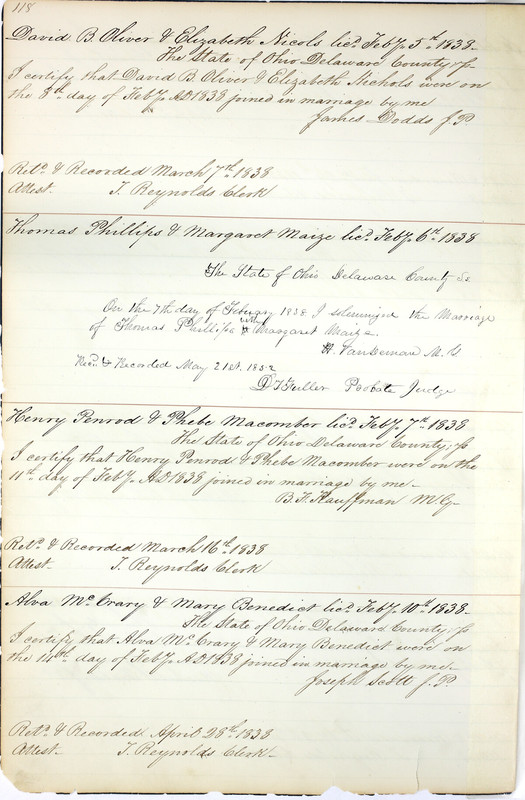 118
David B. Oliver & Elizabeth Nicols licd. Feby. 5th. 1838-
The State of Ohio Delaware County, sp
I certify that David B. Oliver & Elizabeth Nichols were on
the 8th day of Feby. AD 1838 joined in marriage by me
James Dodds J.P.
Retd. & Recorded March 7th. 1838
Attest. T. Reynolds Clerk
Thomas Phillips & Margaret Maize licd. Feby. 6th. 1838
The State of Ohio Delaware County Ss.
On the 7th day of February 1838 I solemnized the Marriage
of Thomas Phillips with Margaret Maize.
H. VanDeman M.G.
Recd. & Recorded May 21st. 1852
D T Fuller Probate Judge
Henry Penrod & Phebe Macomber licd. Feby. 7th. 1838
The State of Ohio Delaware County, sp
I certify that Henry Penrod & Phebe Macomber were on the
11th. day of Feby. AD 1838 joined in marriage by me-
B. F. Kauffman M.G-
Retd. & Recorded March 16th. 1838
Attest. T. Reynolds Clerk
Alva McCrary & Mary Benedict licd. Feby. 10th. 1838-
The State of Ohio Delaware County, sp
I certify that Alva McCrary & Mary Benedict were on
the 14th. day of Feby. AD 1838 joined in marriage by me-
Joseph Scott J.P
Retd. & Recorded April 28th. 1838
Attest- T. Reynolds Clerk-